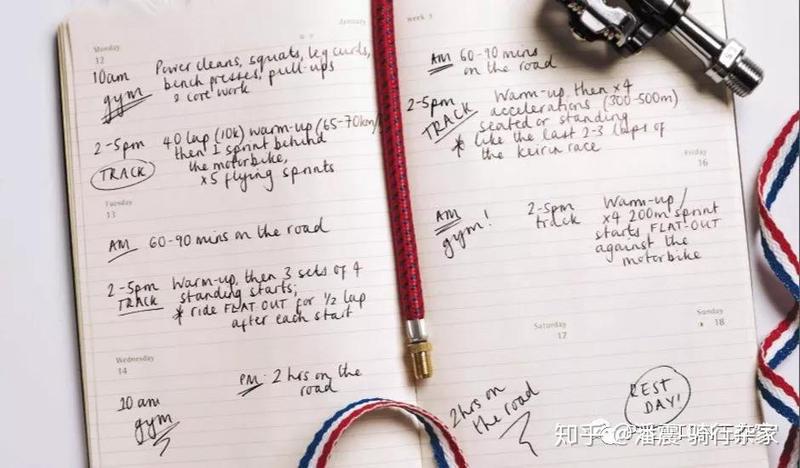 January
Monday
12
10am Power cleans, squats, leg curls,
gym bench presses, pull-ups
& core work
2-5pm 40 lap (10k) warm-up (65-70km/
TRACK then 1 sprint behind
the motorbike,
x5 flying sprints
Tuesday
13
AM 60-90 mins on the road
2-5pm Warm-up, then 3 sets of 4
TRACK standing starts;
* ride FLAT OUT for 1/2 lap
after each start
Wednesday
14
10am PM: 2 hrs on the
gym road
week 3
AM 60-90 mins
on the road
2-5pm Warm-up, then x4
TRACK accelerations (300-500m)
seated or standing
* like the last 2-3 laps of
the keirin race
Friday
16
AM 2-5pm Warm-up/
gym! track x4 200m sprint
starts FLAT-OUT
against the
motorbike
Saturday
17
2 hrs on
the road
Sunday
18
REST
DAY!
知乎 @潘震-骑行杂家